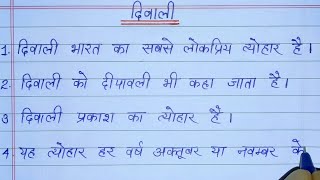 दिवाली
1. दिवाली भारत का सबसे लोकप्रिय त्योहार है।
2. दिवाली को दीपावली भी कहा जाता है।
3 दिवाली प्रकाश का त्योहार है।
4. यह त्योहार हर वर्ष अक्टूबर या नवम्बर के